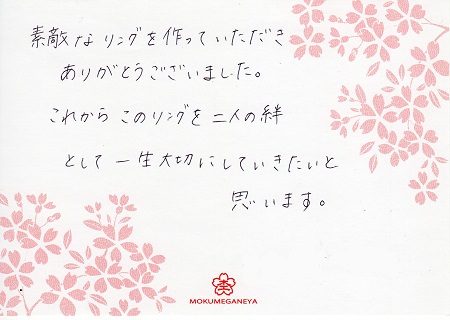 素敵なリングを作っていただき
ありがとうございました。
これからこのリングを二人の絆
として一生大切にしていきたいと
思います。
MOKUMEGANEYA